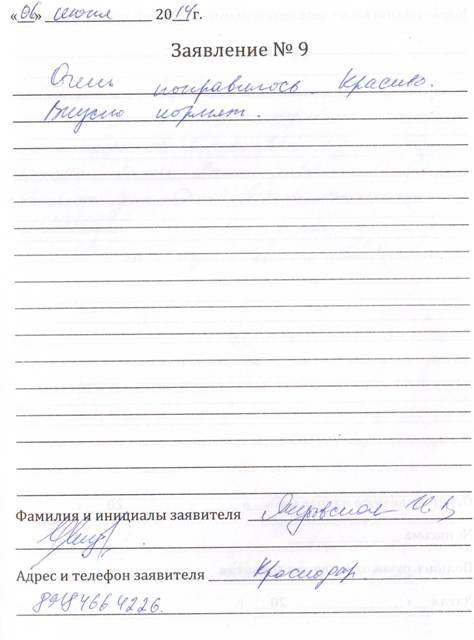 «06» июля 2014г.
Заявление № 9
Очень понравилось. Красиво.
Вкусно кормят.
Фамилия и инициалы заявителя
Адрес и телефон заявителя Краснодар
89184664226.